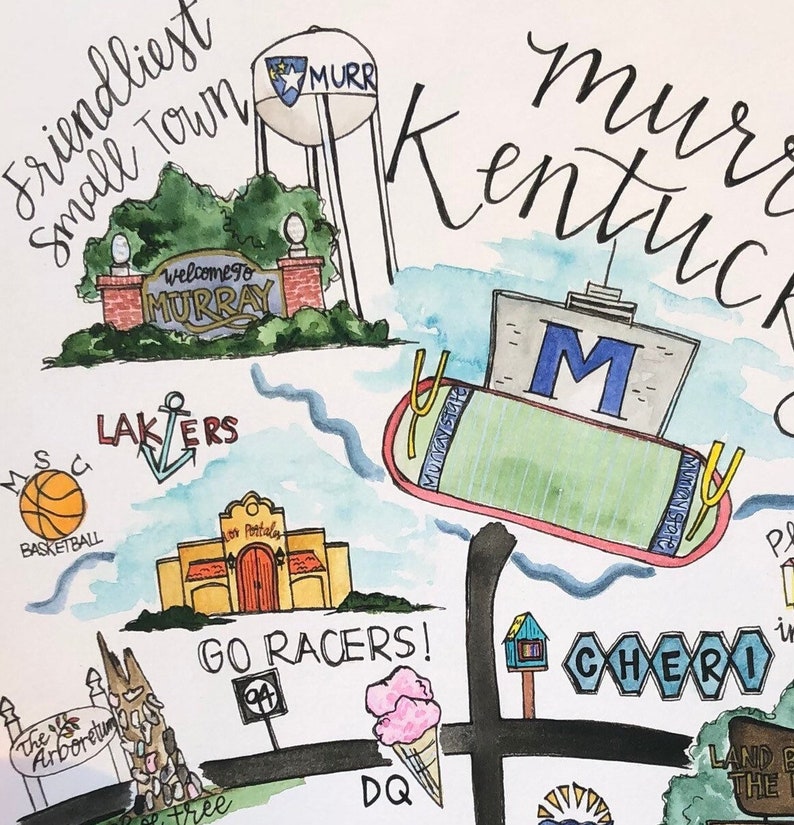 Friendliest
Small Town
MURR
Murr
Kentuck
Welcome to
MURRAY
M
Murray State
Murray State
LAKERS
MSC
BASKETBALL
Los Portales
GO RACERS!
94
CHERI
The
Arboretum
DQ
LAND B
THE
tree